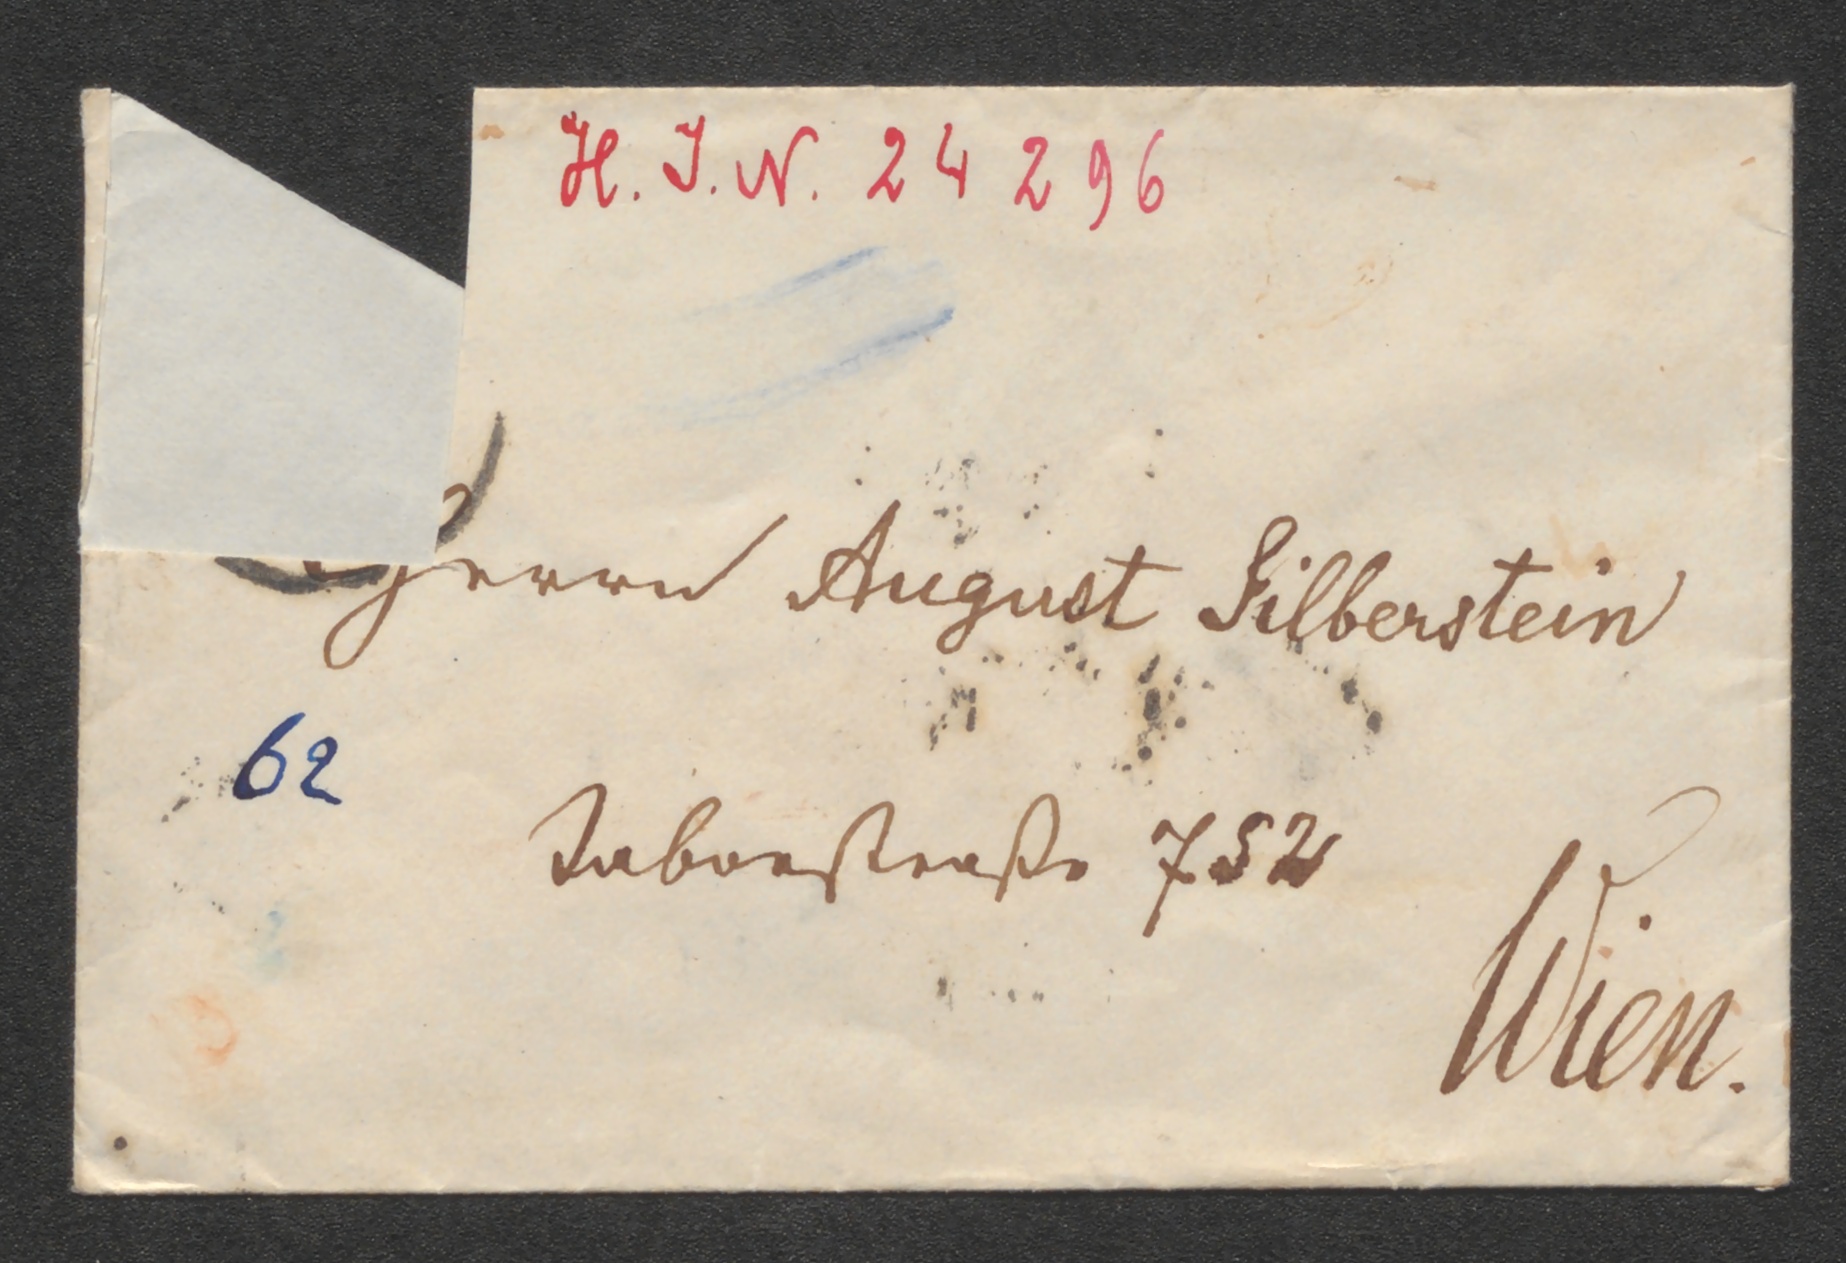 H. J. N. 24 296
Herrn August Silberstein
62
Taborstraße 752
Wien.